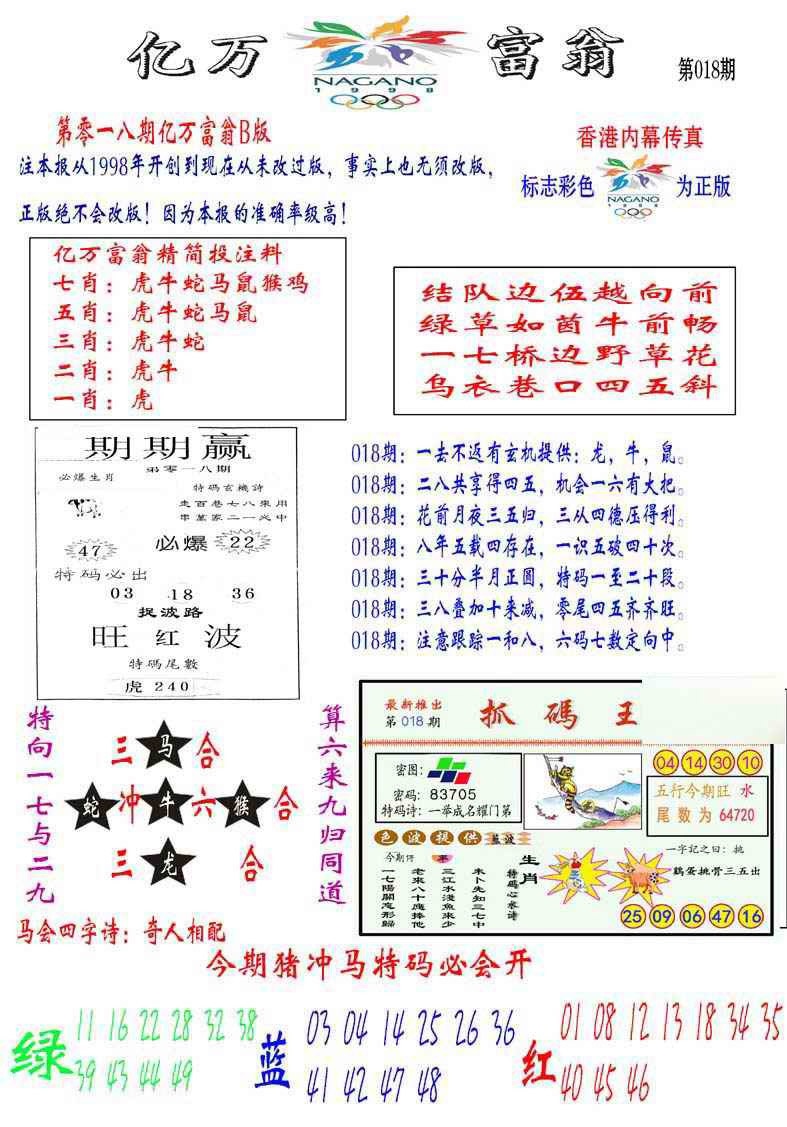 亿万
NAGANO
1998
富翁
第018期
第零一八期亿万富翁B版
注本报从1998年开创到现在从未改过版，事实上也无须改版，
正版绝不会改版！因为本报的准确率级高！
香港内幕传真
标志彩色 NAGANO 1998 为正版
亿万富翁精简投注料
七肖：虎牛蛇马鼠猴鸡
五肖：虎牛蛇马鼠
三肖：虎牛蛇
二肖：虎牛
一肖：虎
结队边伍越向前
绿草如茵牛前畅
一七桥边野草花
乌衣巷口四五斜
期期赢
第零一八期
必爆生肖
特码玄機詩
走百巷七八來用
串萬家二一火中
47
必爆 22
特码必出
03 18 36
捉波路
旺红波
特码尾數
虎240
018期：一去不返有玄机提供：龙，牛，鼠。
018期：二八共享得四五，机会一六有大把。
018期：花前月夜三五归，三从四德压得利。
018期：八年五载四存在，一识五破四十次。
018期：三十分半月正圆，特码一至二十段。
018期：三八叠加十来减，零尾四五齐齐旺。
018期：注意跟踪一和八，六码七数定向中。
特向一七与二九
三马合
蛇冲牛六猴合
三龙合
算六来九归同道
马会四字诗：奇人相配
最新推出
第018期
抓碼王
密图：
密码：83705
特码诗：一举成名耀门第
04 14 30 10
五行今期旺 水
尾数为 64720
色波提供 蓝波
今期闭
一七陽關忘形歸
老來八十應捧他
三江水淺魚來少
未卜先知三七中
特码心水诗
生肖
一字記之曰：挑
鷄蛋挑骨三五出
25 09 06 47 16
今期猪冲马特码必会开
绿
11 16 22 28 32 38
39 43 44 49
蓝
03 04 14 25 26 36
41 42 47 48
红
01 08 12 13 18 34 35
40 45 46